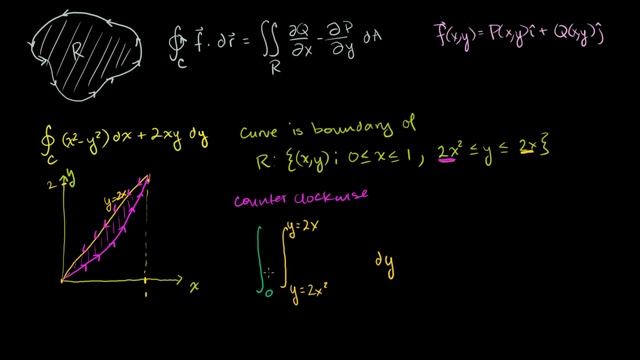 R
∮_C f⃗ · dr⃗ = ∬_R ∂Q/∂x − ∂P/∂y dA
f⃗(x,y) = P(x,y)î + Q(x,y)ĵ
∮_C (x² − y²) dx + 2xy dy
curve is boundary of
R: {(x,y) ; 0 ≤ x ≤ 1, 2x² ≤ y ≤ 2x}
counter clockwise
2 y
y=2x
x
1
∫_0 ∫_{y=2x²}^{y=2x} dy